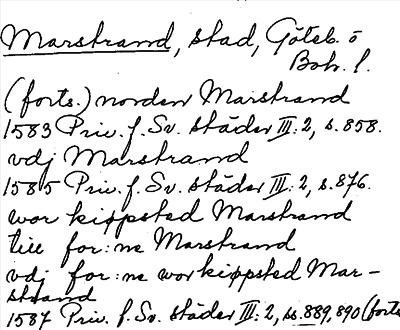 Marstrand, stad, Göteb. o
Boh. l.
(forts.) norden Marstrand
1583 Priv. f. Sv. städer III: 2, s. 858.
vdj Marstrand
1585 Priv. f. Sv. städer III: 2, s. 876.
wor kiøpsted Marstrand
till for:ne Marstrand
vdj for:ne wor kiøpsted Mar-
strand
1587 Priv. f. Sv. städer III: 2, ss. 889, 890 (forts